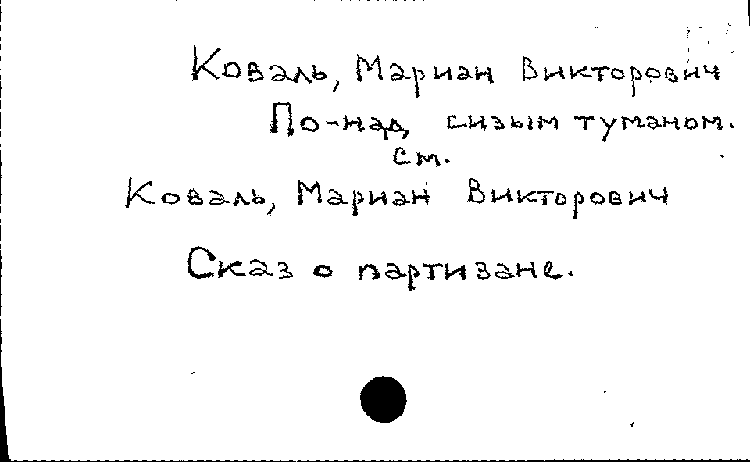 Коваль, Мариан Викторович
По-над сизым туманом.
см.
Коваль, Мариан Викторович
Сказ о партизане.